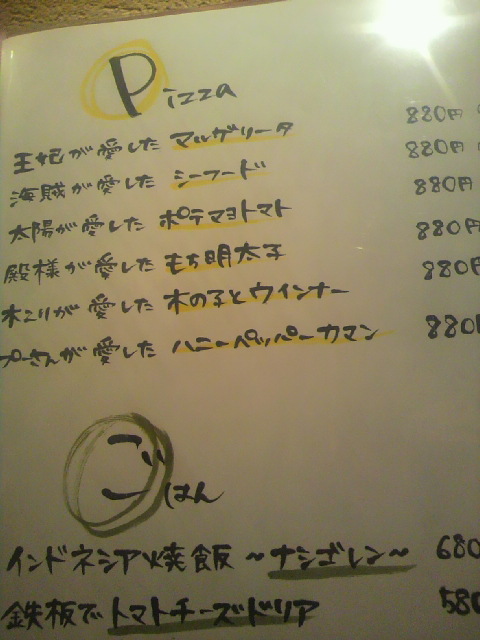 Pizza
王妃が愛した マルゲリータ 880円
海賊が愛した シーフード 880円
太陽が愛した ポテマヨトマト 880円
殿様が愛した もち明太子 880円
木こりが愛した 木の子とウインナー 880円
プーさんが愛した ハニーペッパーカマン 880
ごはん
インドネシア焼飯 〜ナシゴレン〜 680
鉄板でトマトチーズドリア 580